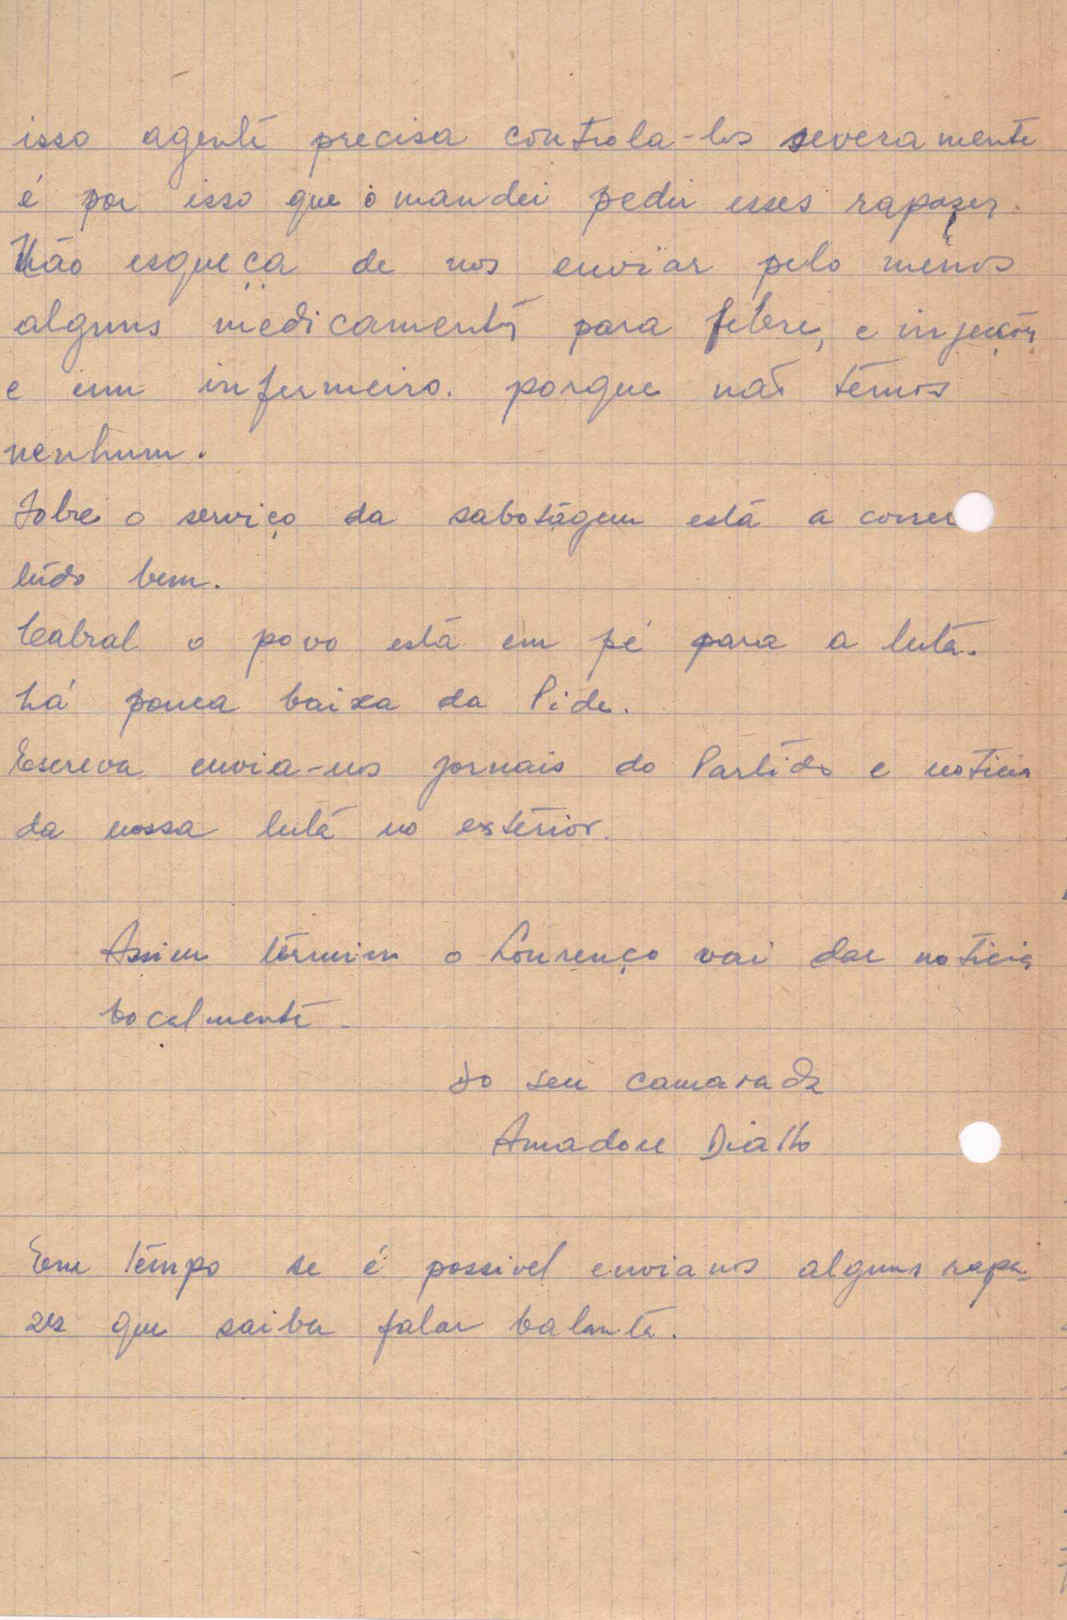 isso agente precisa controla-los severamente
é por isso que o mandei pedir esses rapazes.
Não esqueça de nos enviar pelo menos
alguns medicamentos para febre, e injeções
e um infermeiro. porque não temos
nenhum.
Sobre o serviço da sabotagem está a correr
tudo bem.
Cabral o povo está em pé para a luta.
há pouca baixa da Pide.
Escreva envia-nos jornais do Partido e noticia
da nossa luta no exterior.
Assim termino o Lourenço vai dar noticia
bocalmente.
do seu camarada
Amadou Diallo
Em tempo se é possivel envianos alguns rapa-
zes que saiba falar balanta.